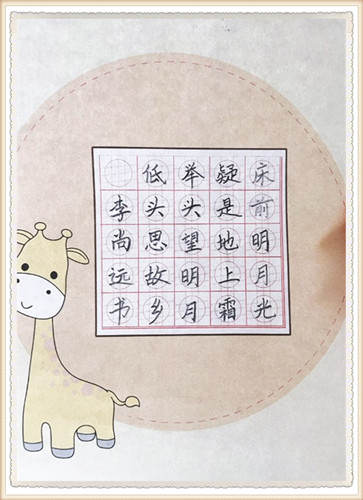 床前明月光
疑是地上霜
举头望明月
低头思故乡
李尚远书